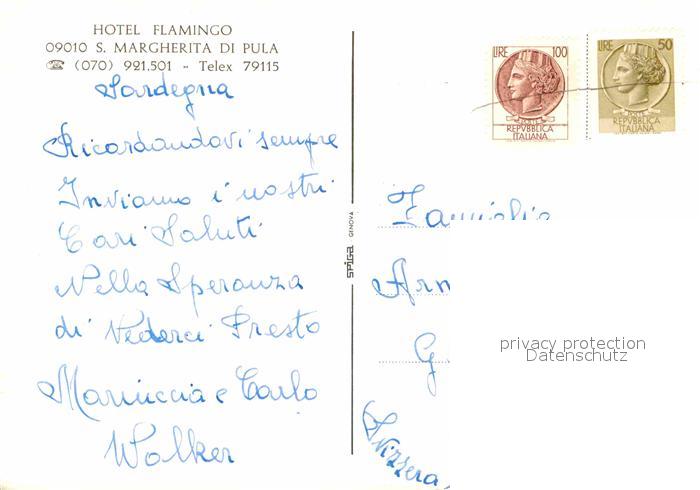 HOTEL FLAMINGO
09010 S. MARGHERITA DI PULA
☎ (070) 921.501 - Telex 79115
Sardegna
Ricordandovi sempre
Inviamo i nostri
Cari Saluti
Nella Speranza
di Vederci Presto
Mariuccia e Carlo
Walker
SPIGA GENOVA
LIRE 100
REPVBBLICA
ITALIANA
LIRE 50
REPVBBLICA
ITALIANA
Famiglia
Arn
G
Svizzera
privacy protection
Datenschutz